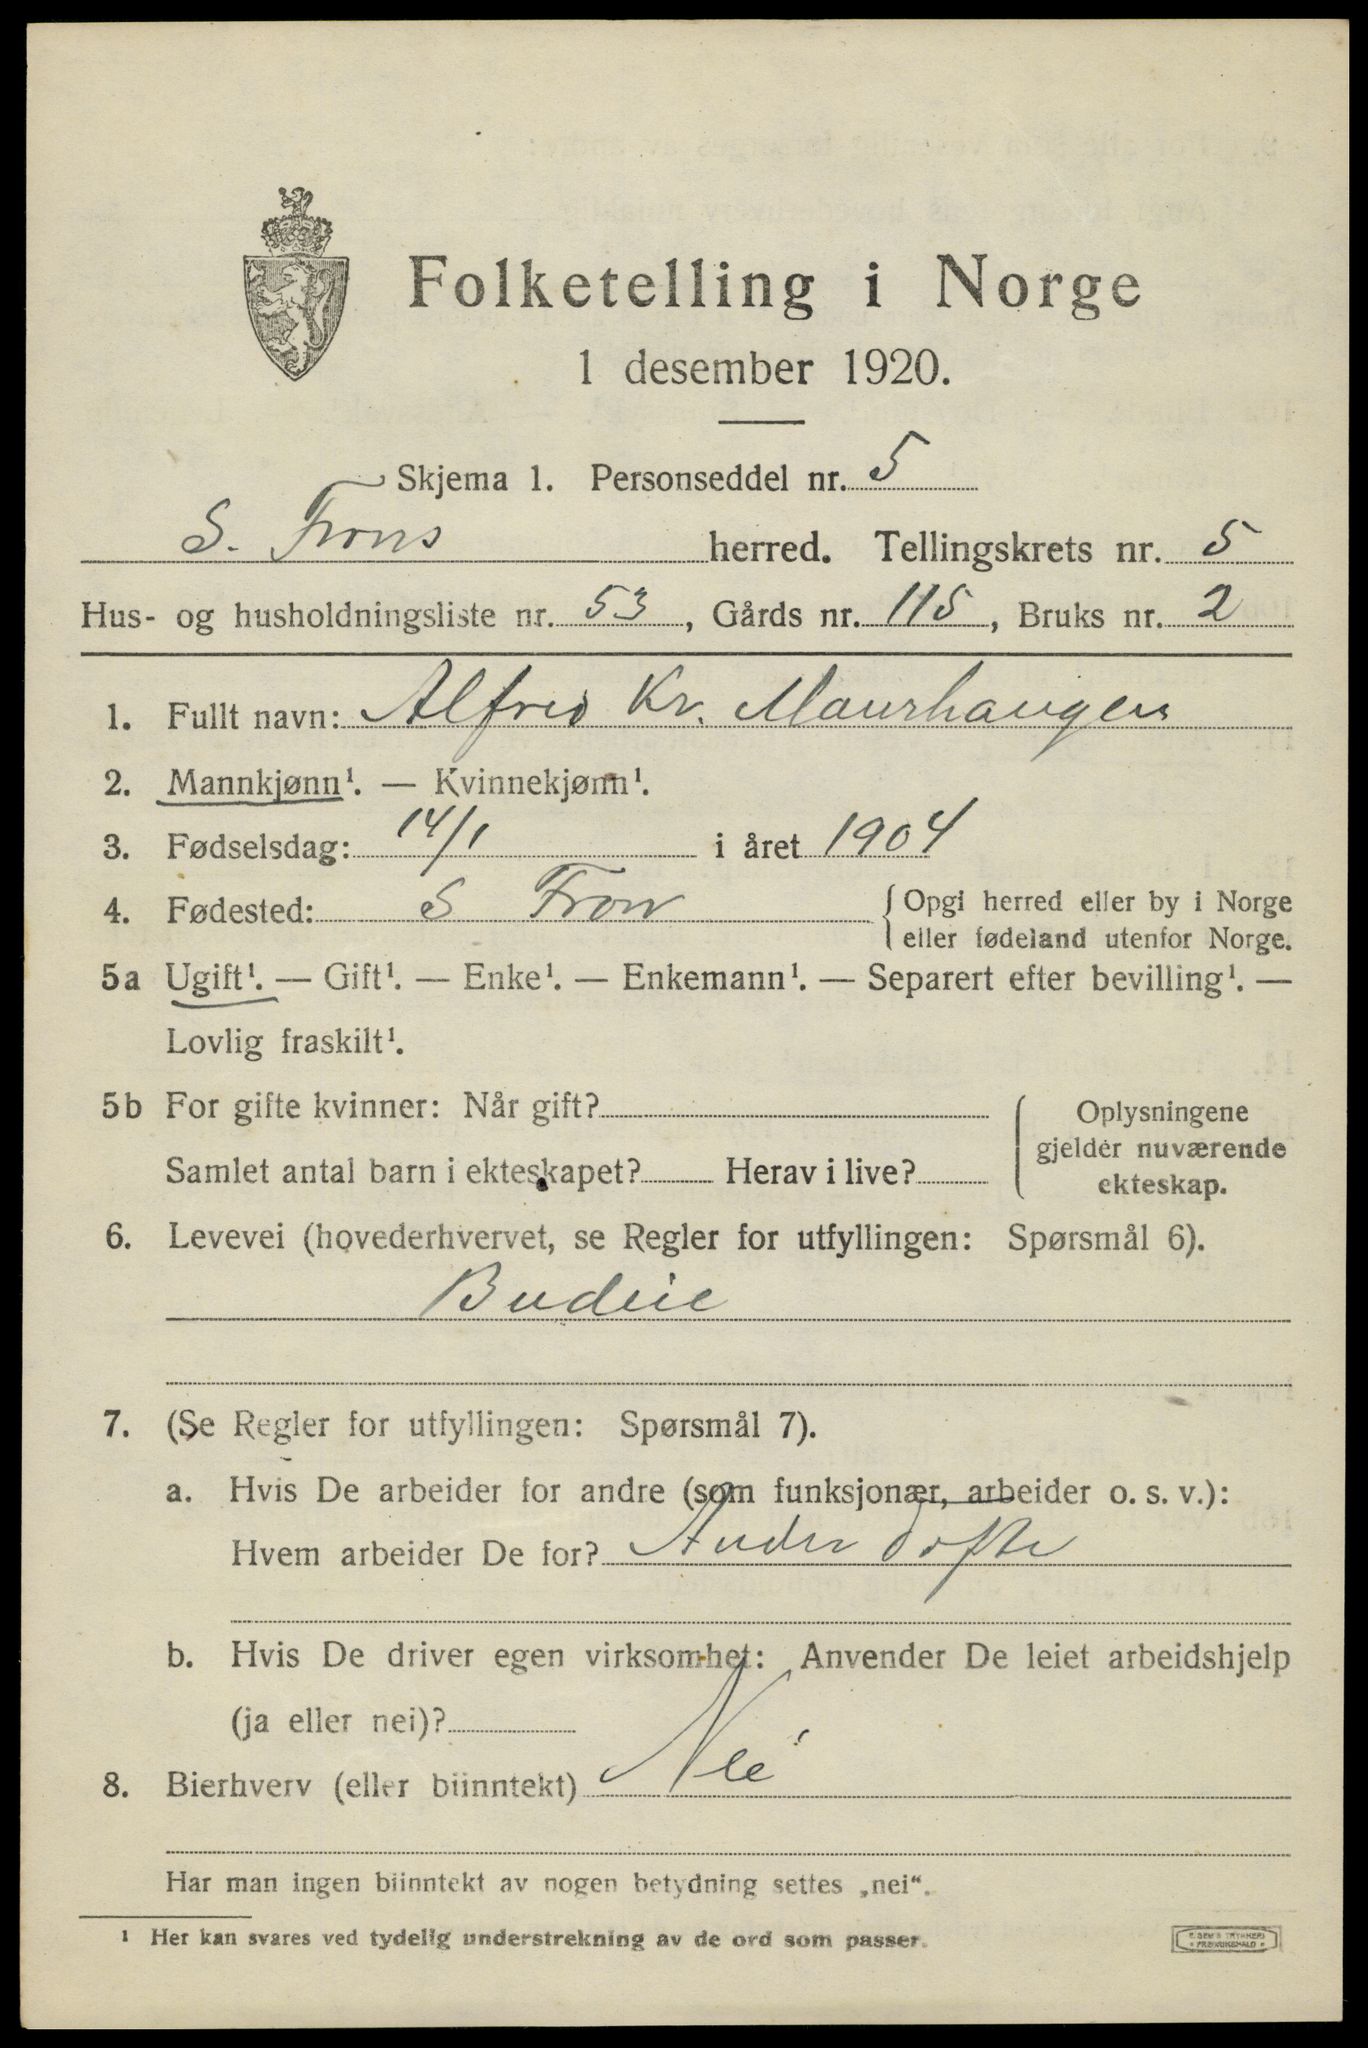 Folketelling i Norge
1 desember 1920.
Skjema 1. Personseddel nr. 5
S. Frons herred. Tellingskrets nr. 5
Hus- og husholdningsliste nr. 53, Gårds nr. 115, Bruks nr. 2
1. Fullt navn: Alfred Kr. Maurhaugen
2. Mannkjønn¹. — Kvinnekjønn¹.
3. Fødselsdag: 14/1 i året 1904
4. Fødested: S Fron {Opgi herred eller by i Norge
eller fødeland utenfor Norge.
5a Ugift¹. — Gift¹. — Enke¹. — Enkemann¹. — Separert efter bevilling¹. —
Lovlig fraskilt¹.
5b For gifte kvinner: Når gift?
Samlet antal barn i ekteskapet? Herav i live?
Oplysningene
gjelder nuværende
ekteskap.
6. Levevei (hovederhvervet, se Regler for utfyllingen: Spørsmål 6).
Budeie
7. (Se Regler for utfyllingen: Spørsmål 7).
a. Hvis De arbeider for andre (som funksjonær, arbeider o. s. v.):
Hvem arbeider De for? Tofte
b. Hvis De driver egen virksomhet: Anvender De leiet arbeidshjelp
(ja eller nei)?
8. Bierhverv (eller biinntekt) Nei
Har man ingen biinntekt av nogen betydning settes „nei“.
¹ Her kan svares ved tydelig understrekning av de ord som passer.